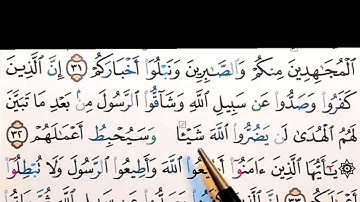 الْمُجَاهِدِينَ مِنكُمْ وَالصَّابِرِينَ وَنَبْلُوَا أَخْبَارَكُمْ ٣١ إِنَّ الَّذِينَ
كَفَرُوا وَصَدُّوا عَن سَبِيلِ اللَّهِ وَشَاقُّوا الرَّسُولَ مِن بَعْدِ مَا تَبَيَّنَ
لَهُمُ الْهُدَىٰ لَن يَضُرُّوا اللَّهَ شَيْئًا وَسَيُحْبِطُ أَعْمَالَهُمْ ٣٢
يَا أَيُّهَا الَّذِينَ ءَامَنُوا أَطِيعُوا اللَّهَ وَأَطِيعُوا الرَّسُولَ وَلَا تُبْطِلُوا